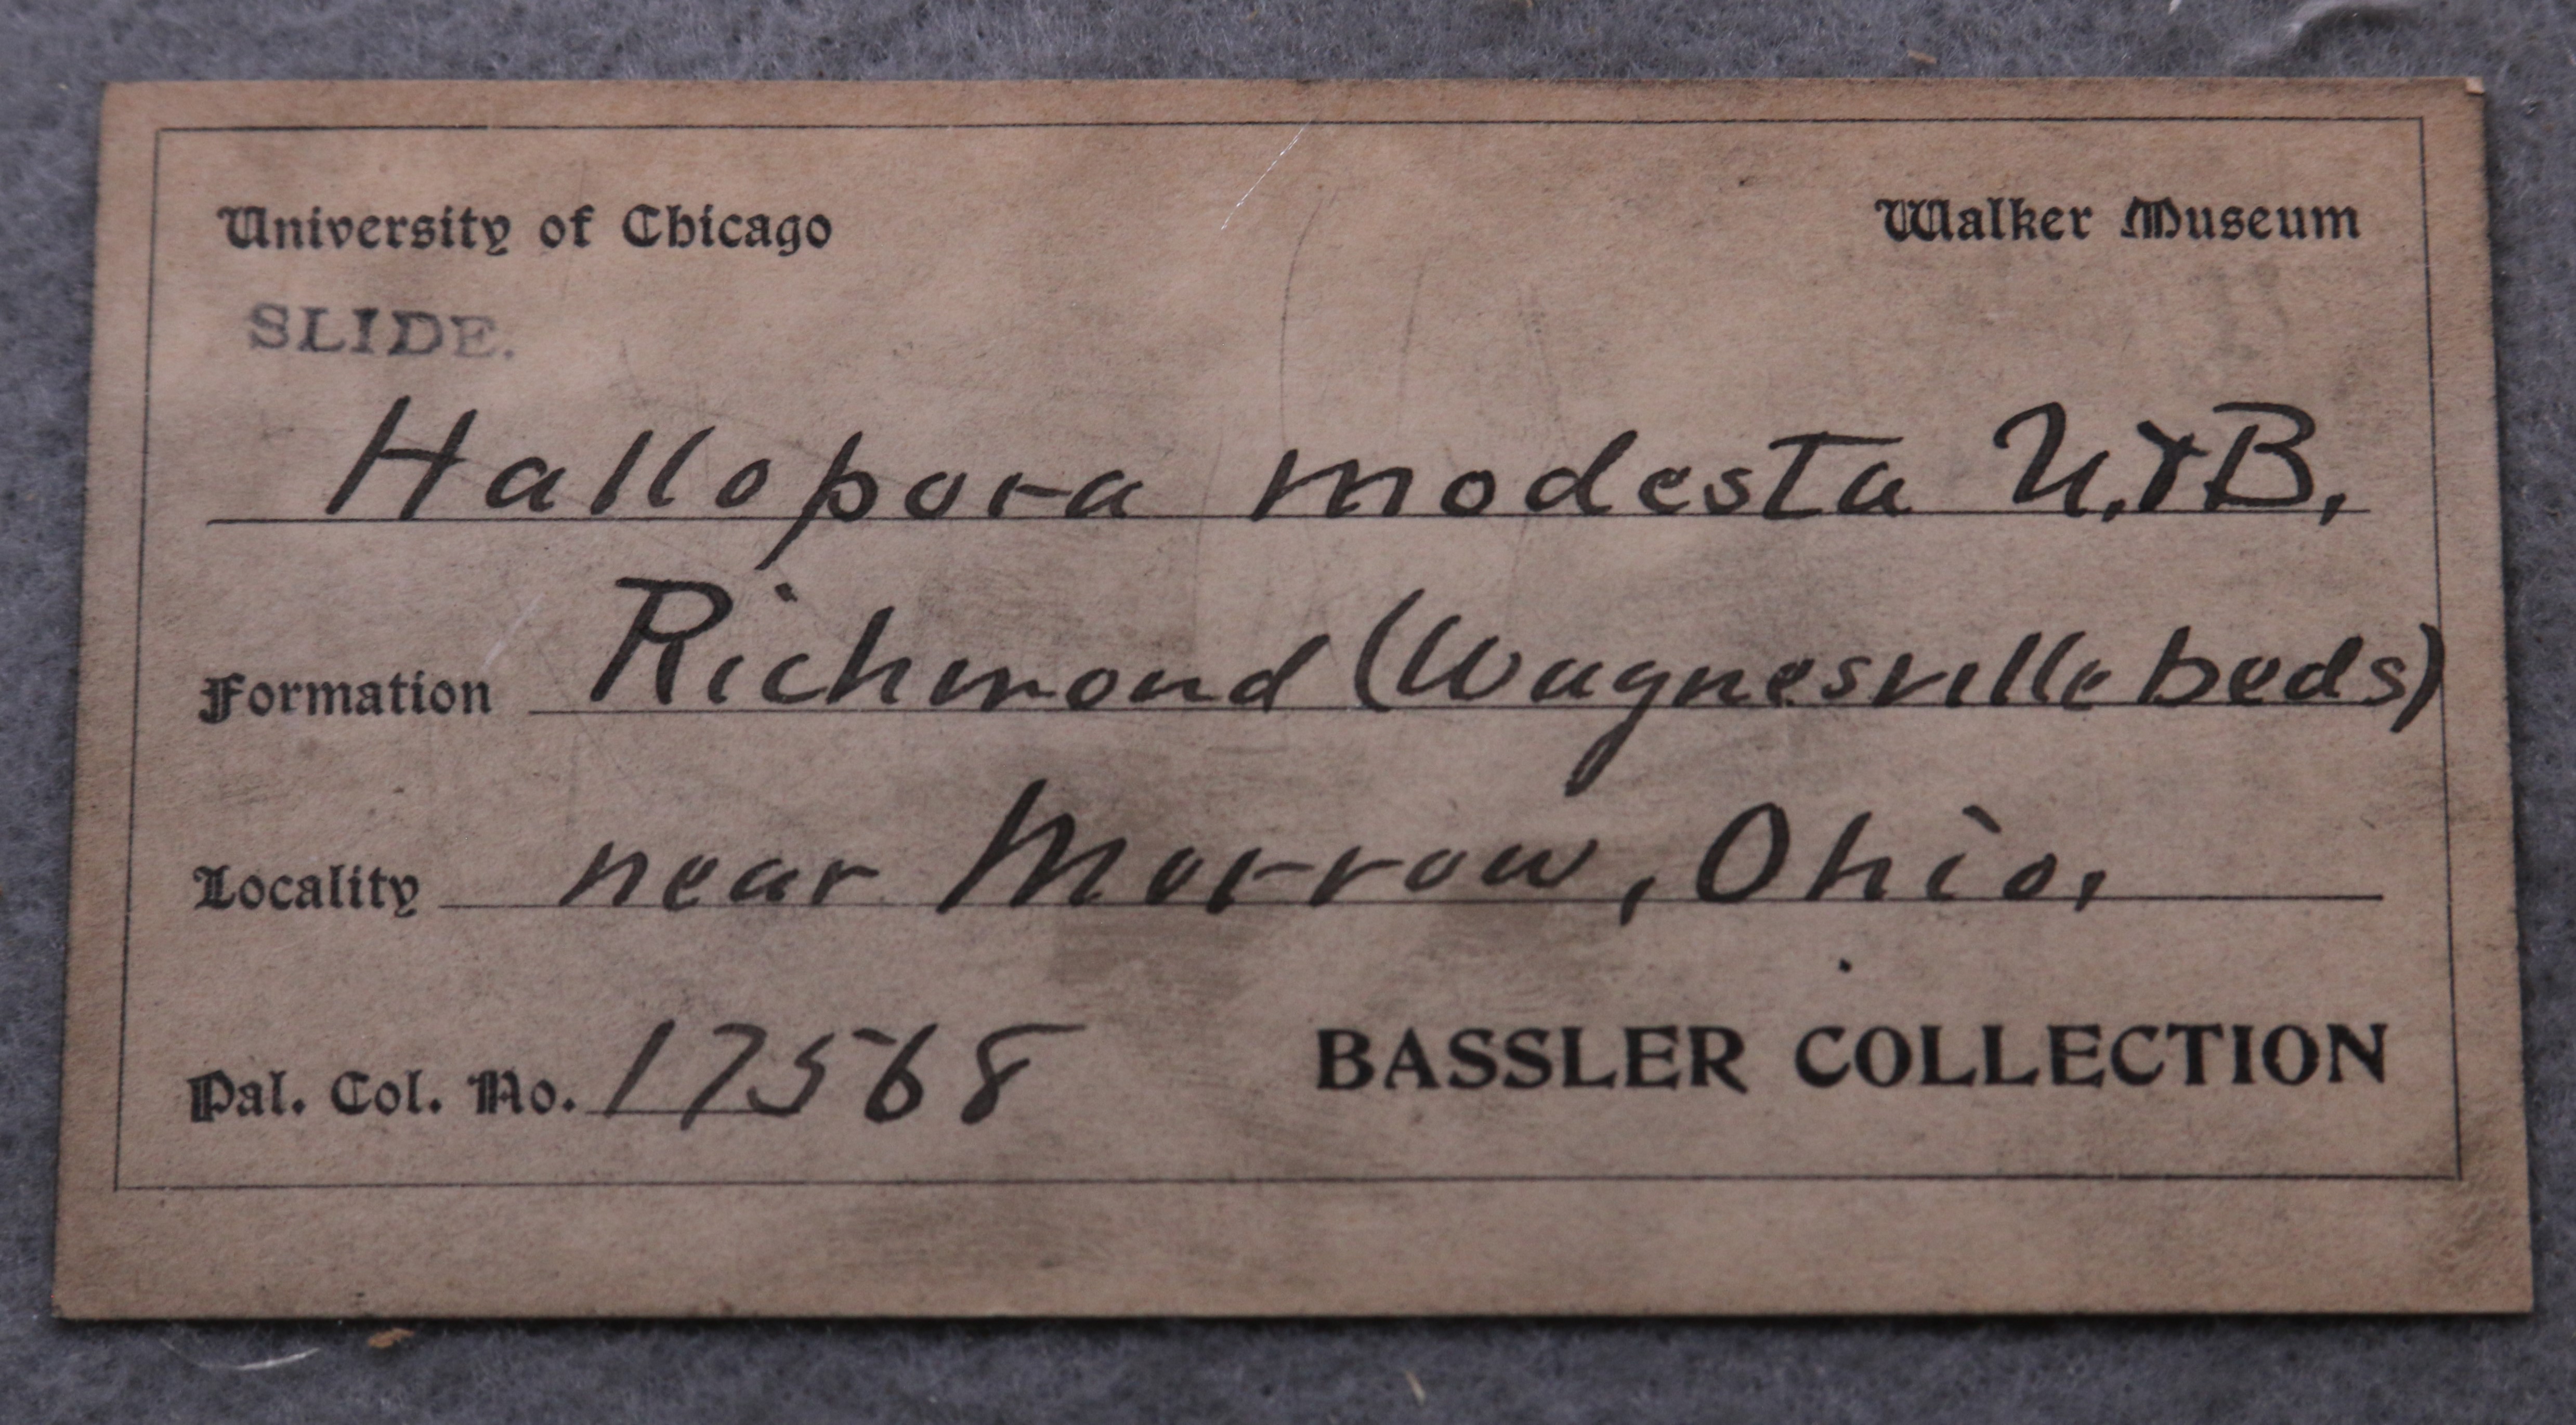 University of Chicago Walker Museum
SLIDE.
Hallopora modesta U.&B.
Formation Richmond (Waynesville beds)
Locality near Morrow, Ohio.
Pal. Col. No. 17568 BASSLER COLLECTION